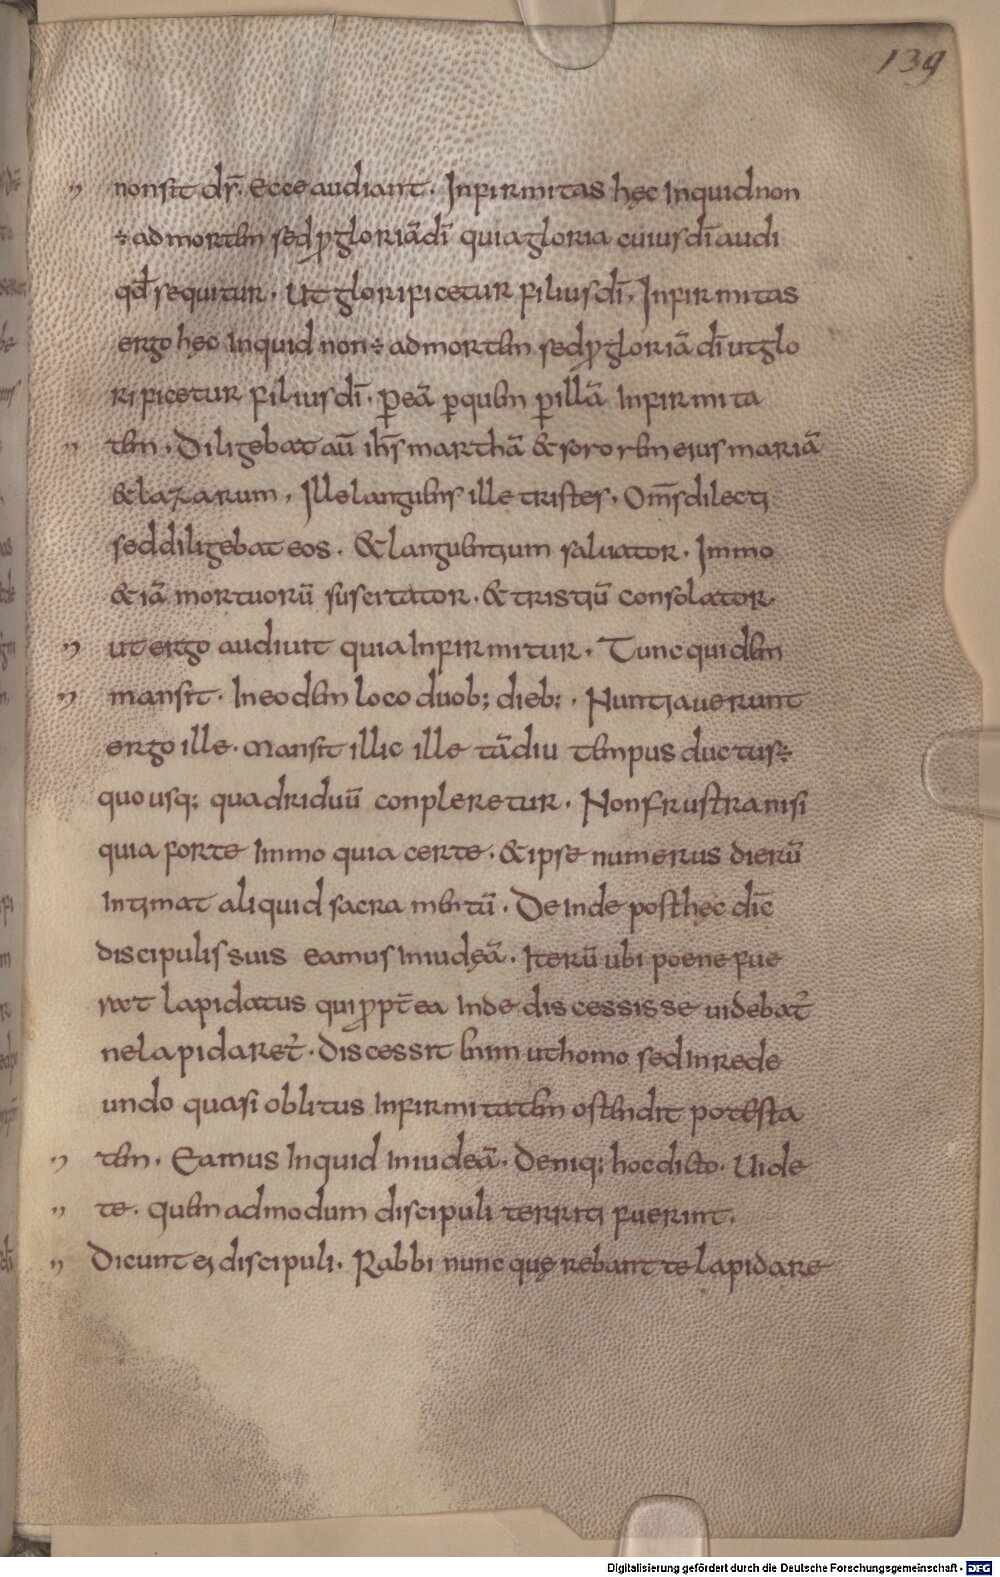 139
" non sit dr̄. Ecce audiant. Infirmitas hęc inquid non
÷ ad mortem sed ꝓ gloriā dī quia gloria cuius dī audi
qđ sequitur. Ut glorificetur filius dī. Infirmitas
ergo hęc inquid non ÷ ad mortem sed ꝓ gloriā dī ut glo
rificetur filius dī. ꝑ eā ꝑ quem ꝑ illā infirmita
" tem. Diligebat aū ih̄s marthā & sororem eius mariā
& lazarum. Ille languens ille tristes. Om̄s dilecti
sed diligebat eos. & languentium saluator. Immo
& iā mortuorū suscitator. & tristiū consolator
" ut ergo audiuit quia infirmitur. Tunc quidem
" mansit. In eodem loco duob; dieb;. Nuntiauerunt
ergo ille. mansit illic ille tādiu tempus ductus ÷
quo usq; quadriduū conpleretur. Non frustra nisi
quia forte immo quia certe. & ipse numerus dierū
intimat aliquid sacramentū. De inde post hęc dic̄
discipulis suis eamus in iudęā. Iterū ubi poene fue
rat lapidatus qui ꝓpt̄ea inde discessisse uidebat̄
ne lapidaret̄. Discessit enim ut homo sed in rede
undo quasi oblitus infirmitatem ostendit potesta
" tem. Eamus inquid in iudeā. Deniq; hoc dicto. Uide
" te. quem admodum discipuli territi fuerint.
" Dicunt ei discipuli. Rabbi nunc quęrebant te lapidare
Digitalisierung gefördert durch die Deutsche Forschungsgemeinschaft - DFG